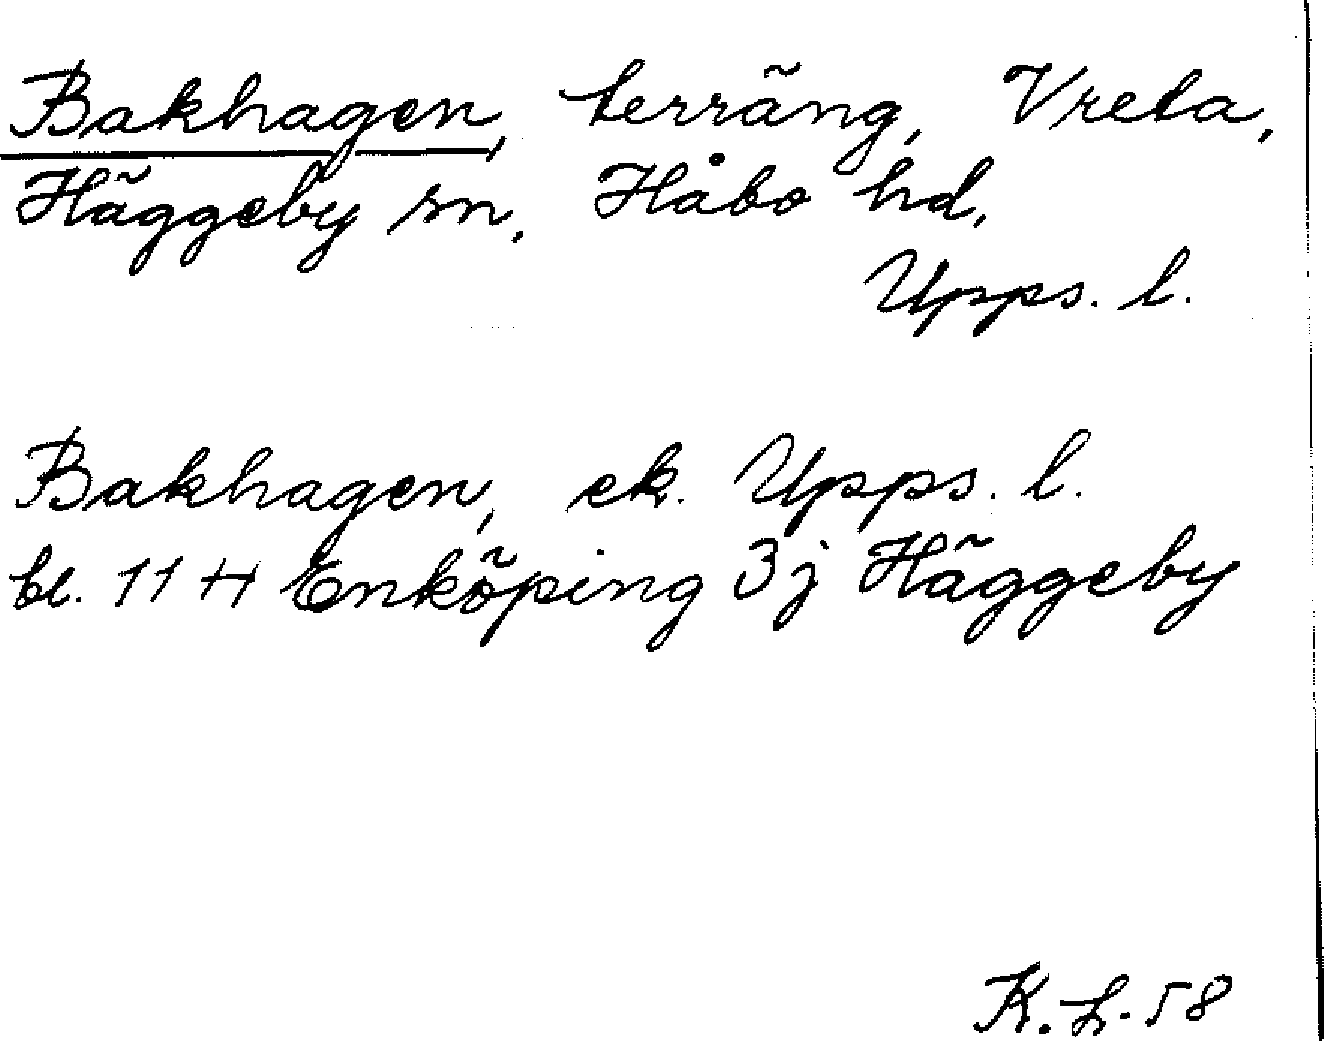 Bakhagen, terräng, Vreta,
Häggeby sn, Håbo hd,
Upps. l.
Bakhagen, ek. Upps. l.
bl. 11 H Enköping 3 j Häggeby
K. L. 58